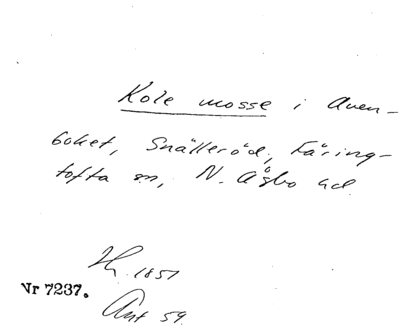 Kole mosse i Aven-
boket, Snälleröd, Färing-
tofta sn, N. Åsbo hd
H. 1851
Nr 7237.
Ant 59.